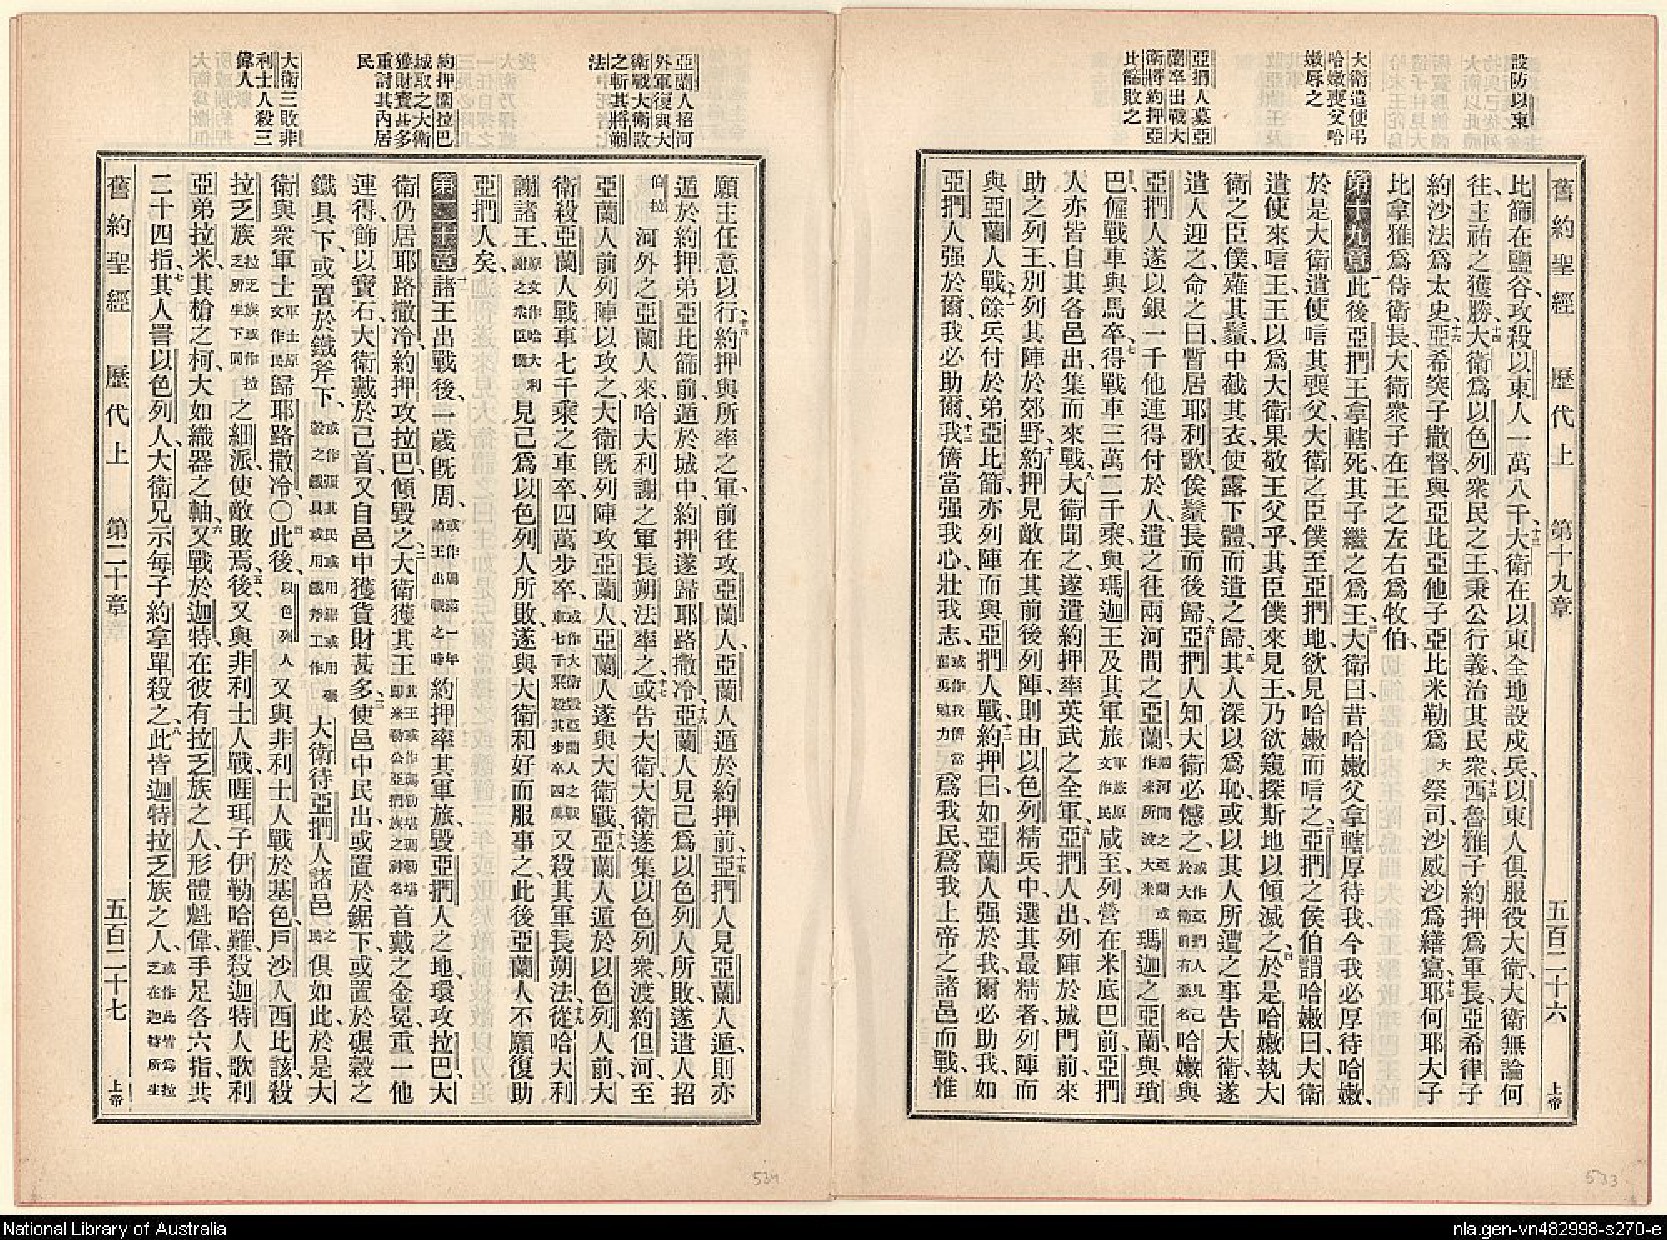 設防以東
大衛遣使弔
哈嫩喪父哈
嫩辱之
亞捫人募亞
蘭卒出戰大
衛將約押亞
比篩敗之
舊約聖經 歷代上 第十九章 五百二十六 上帝
比篩在鹽谷、攻殺以東人一萬八千、十三大衛在以東全地設戍兵、以東人俱服役大衛、大衛無論何
往、主祐之獲勝、十四大衛爲以色列衆民之王、秉公行義、治其民衆、十五西魯雅子約押爲軍長、亞希律子
約沙法爲太史、十六亞希突子撒督、與亞比亞他子亞比米勒爲大祭司、沙威沙爲繕寫、十七耶何耶大子
比拿雅爲侍衛長、大衛衆子在王之左右爲牧伯、
第十九章 一此後亞捫王拿轄死、其子繼之爲王、二大衛曰、昔哈嫩父拿轄厚待我、今我必厚待哈嫩、
於是大衛遣使唁其喪父、大衛之臣僕至亞捫地、欲見哈嫩而唁之、三亞捫之侯伯謂哈嫩曰、大衛
遣使來唁王、王以爲大衛果敬王父乎、其臣僕來見王、乃欲窺探斯地以傾滅之、四於是哈嫩執大
衛之臣僕、薙其鬚、中截其衣、使露下體、而遣之歸、五其人深以爲恥、或以其人所遭之事告大衛、遂
遣人迎之、命之曰、暫居耶利歌、俟鬚長而後歸、六亞捫人知大衛必憾之、或作亞捫人見己於大衛前有惡名哈嫩與
亞捫人遂以銀一千他連得、付於人、遣之往兩河間之亞蘭、兩河間之亞蘭或作米所波大米瑪迦之亞蘭、與瑣
巴、僱戰車與馬卒、七得戰車三萬二千乘、與瑪迦王及其軍旅、軍旅原文作民咸至、列營在米底巴前、亞捫
人亦皆自其各邑出、集而來戰、八大衛聞之、遂遣約押率英武之全軍、九亞捫人出、列陣於城門前、來
助之列王、別列其陣於郊野、十約押見敵在其前後列陣、則由以色列精兵中、選其最精者、列陣而
與亞蘭人戰、十一餘兵付於弟亞比篩、亦列陣而與亞捫人戰、十二約押曰、如亞蘭人強於我、爾必助我、如
亞捫人強於爾、我必助爾、十三我儕當强我心、壯我志、或作我儕當奮勇勉力爲我民、爲我上帝之諸邑而戰、惟
亞蘭人招河
外軍復與大
衛戰大衛敗
之斬其將朔
法
約押圍拉巴
城取之大衛
獲財寶甚多
重討其內居
民
大衛三敗非
利士人殺三
偉人
願主任意以行、十四約押與所率之軍、前往攻亞蘭人、亞蘭人遁於約押前、十五亞捫人見亞蘭人遁、則亦
遁於約押弟亞比篩前、遁於城中、約押遂歸耶路撒冷、十六亞蘭人見己爲以色列人所敗、遂遣人招
河外之亞蘭人來、哈大利謝之軍長朔法率之、十七或告大衛、大衛遂集以色列衆、渡約但河、至
亞蘭人前、列陣以攻之、大衛既列陣攻亞蘭人、亞蘭人遂與大衛戰、十八亞蘭人遁於以色列人前、大
衛殺亞蘭人戰車七千乘之車卒、四萬步卒、或作大衛毀亞蘭人之戰車七千乘殺其步卒四萬又殺其軍長朔法、十九從哈大利
謝諸王、原文作哈大利謝之衆臣僕見己爲以色列人所敗、遂與大衛和好而服事之、此後亞蘭人不願復助
亞捫人矣、
第二十章 一諸王出戰後一歲既周、或作周滿一年諸王出戰之時約押率其軍旅、毀亞捫人之地、環攻拉巴、大
衛仍居耶路撒冷、約押攻拉巴、傾毀之、二大衛獲其王其王或作瑪勒堪瑪勒堪即米勒公亞捫族之神名首戴之金冕、重一他
連得、飾以寶石、大衛戴於己首、又自邑中獲貨財甚多、三使邑中民出、或置於鋸下、或置於碾穀之
鐵具下、或置於鐵斧下、大衛待亞捫人諸邑之民俱如此、於是大
衛與衆軍士軍士原文作民歸耶路撒冷〇四此後、以色列人又與非利士人戰於基色、戶沙人西比該、殺
拉乏族拉乏族或作拉乏所生下同之細派、使敵敗焉、五後又與非利士人戰、睚珥子伊勒哈難、殺迦特人歌利
亞弟拉米、其槍之柯、大如織器之軸、六又戰於迦特、在彼有拉乏族之人、形體魁偉、手足各六指、共
二十四指、七其人詈以色列人、大衛兄示每子約拿單殺之、八此皆迦特拉乏族之人、或作此皆爲拉乏在迦特所生
舊約聖經 歷代上 第二十章 五百二十七 上帝
534
533
National Library of Australia
nla.gen-vn482998-s270-e